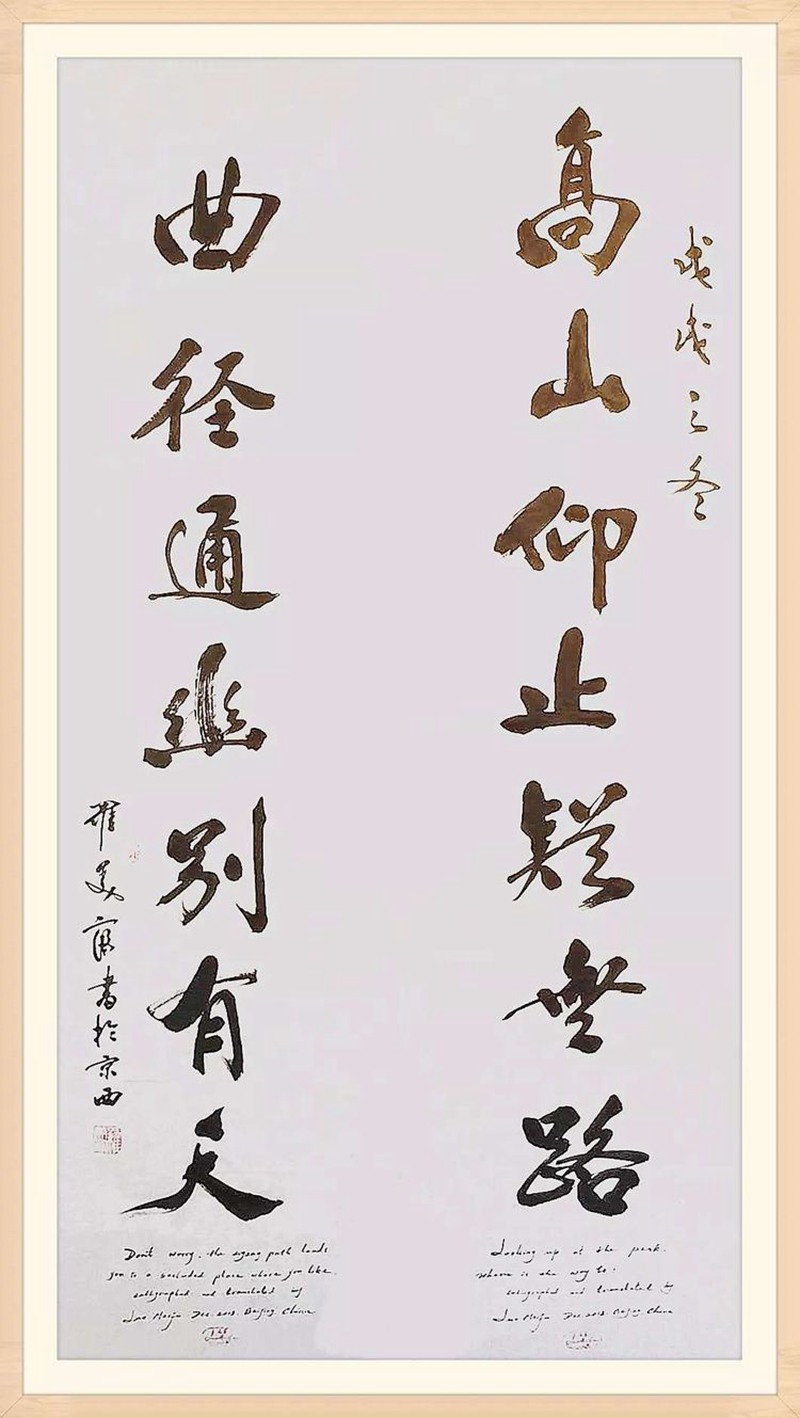 戊戌之冬
高山仰止疑無路
曲径通幽别有天
羅美富書於京西
Looking up at the peak.
Where is the way to?
calligraphed and translated by
Luo Meifu Dec. 2018. Beijing China
Don't worry. the zigzag path leads
you to a secluded place where you like.
calligraphed and translated by
Luo Meifu Dec. 2018. Beijing China